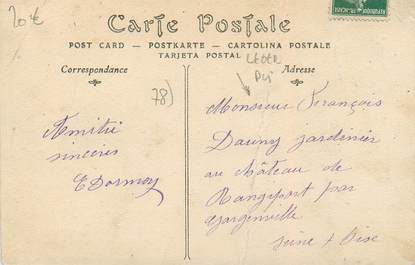 20 €
Carte Postale
POST CARD — POSTKARTE — CARTOLINA POSTALE
TARJETA POSTAL
Correspondance
Adresse
LEGER
Pli
78)
Amitié
sincères
E Dormoy
Monsieur François
Dauny jardinier
au château de
Rangiport par
Gargenville
Seine & Oise